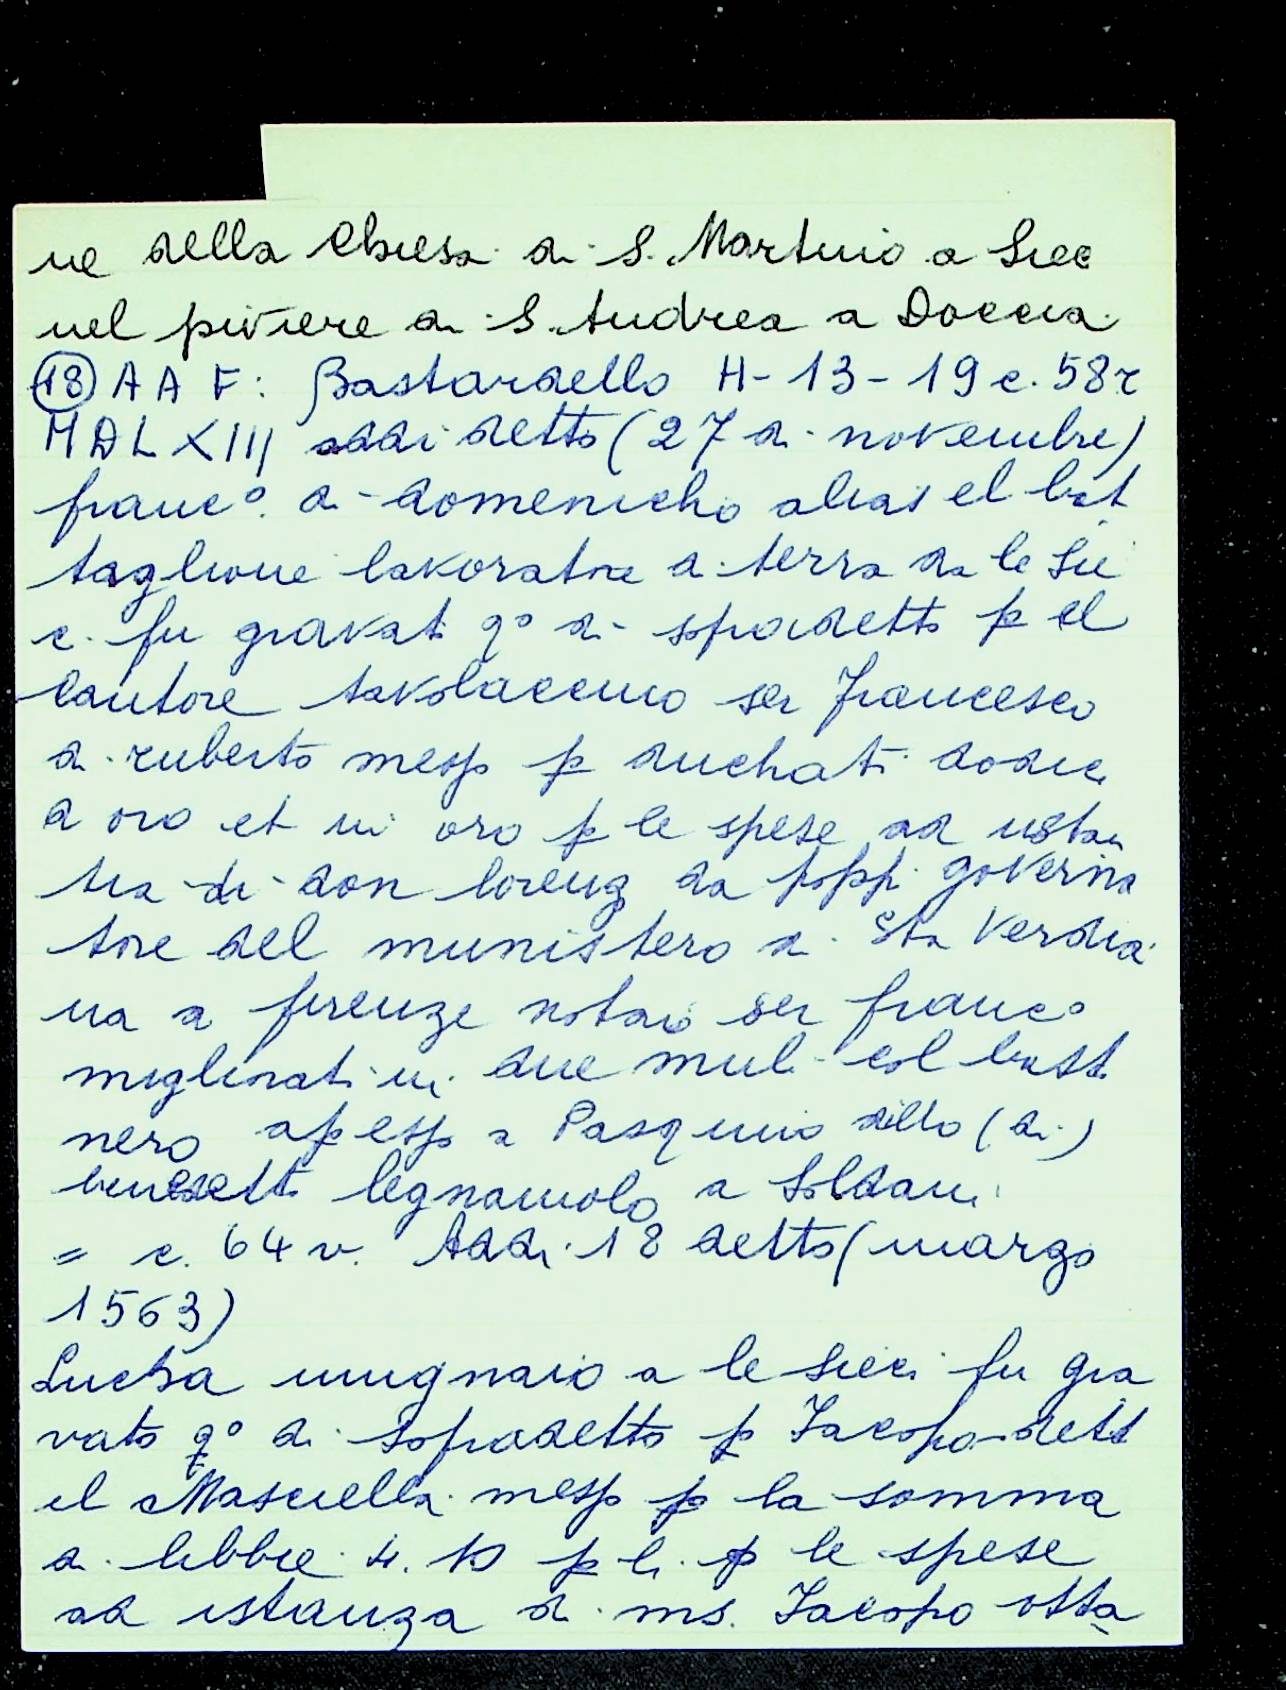 ne della Chiesa di S. Martino a Siec
nel piviere di S. Andrea a Doccia
(18) A A F: Bastardello H-13-19 c. 58r
MDLXIII addi detto (27 di novembre)
franc°. di domenicho alias el bat
taglione lavoratore di terra da le Sie
c. fu gravat q° dì sopradetto p el
Cantore tavolaccino ser francesco
di ruberto messo p duchati dodici
d oro et in oro p le spese ad istan
tia di don lorenz da poppi governa
tore del munistero di Sta Verdia
na di firenze notaio ser franc°
migliorati in due muli col bast
nero apesso a Pasquino dello (di)
benedetto legnaiuolo a Soldani
= c. 64 v. Addi 18 detto (marzo
1563)
Lucha mugnaio a le Sieci fu gra
vato q° dì sopradetto p Jacopo dett
il Masciella messo p la somma
di libbre 4. 10 p li p le spese
ad istanza di ms. Jacopo otta